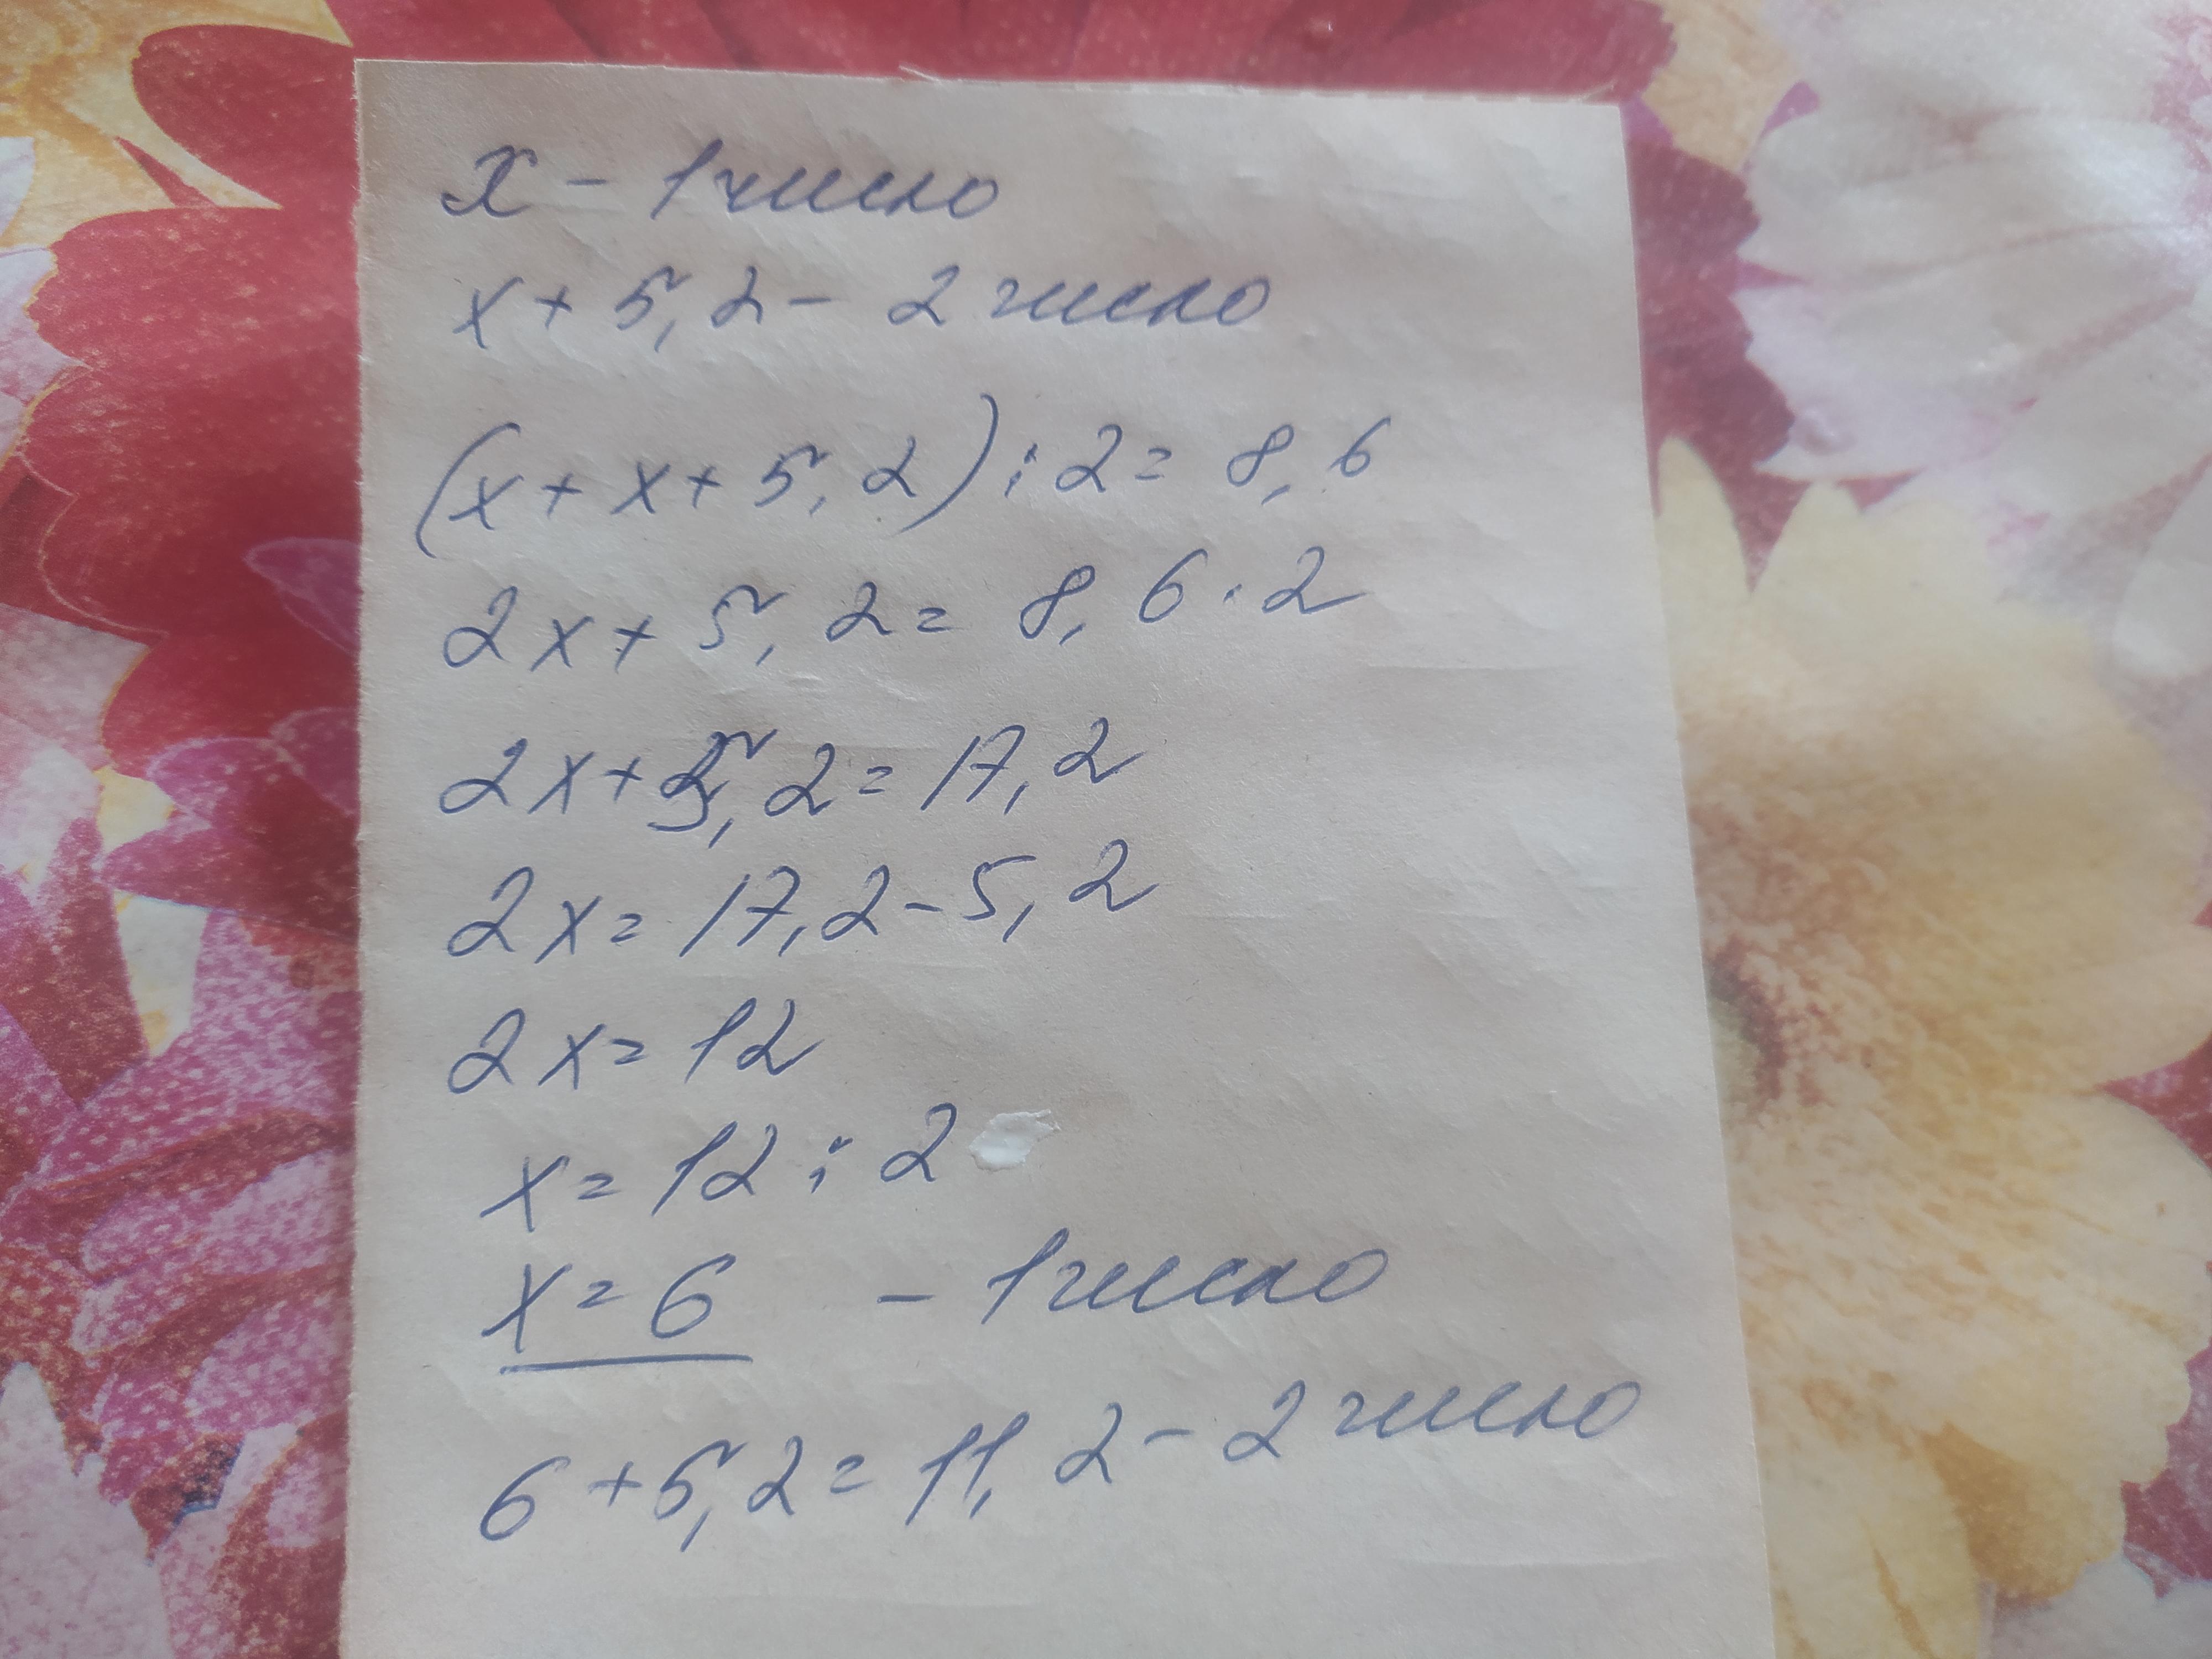 x - 1 число
x + 5,2 - 2 число
(x + x + 5,2) : 2 = 8,6
2x + 5,2 = 8,6 · 2
2x + 5,2 = 17,2
2x = 17,2 - 5,2
2x = 12
x = 12 : 2
x = 6 - 1 число
6 + 5,2 = 11,2 - 2 число